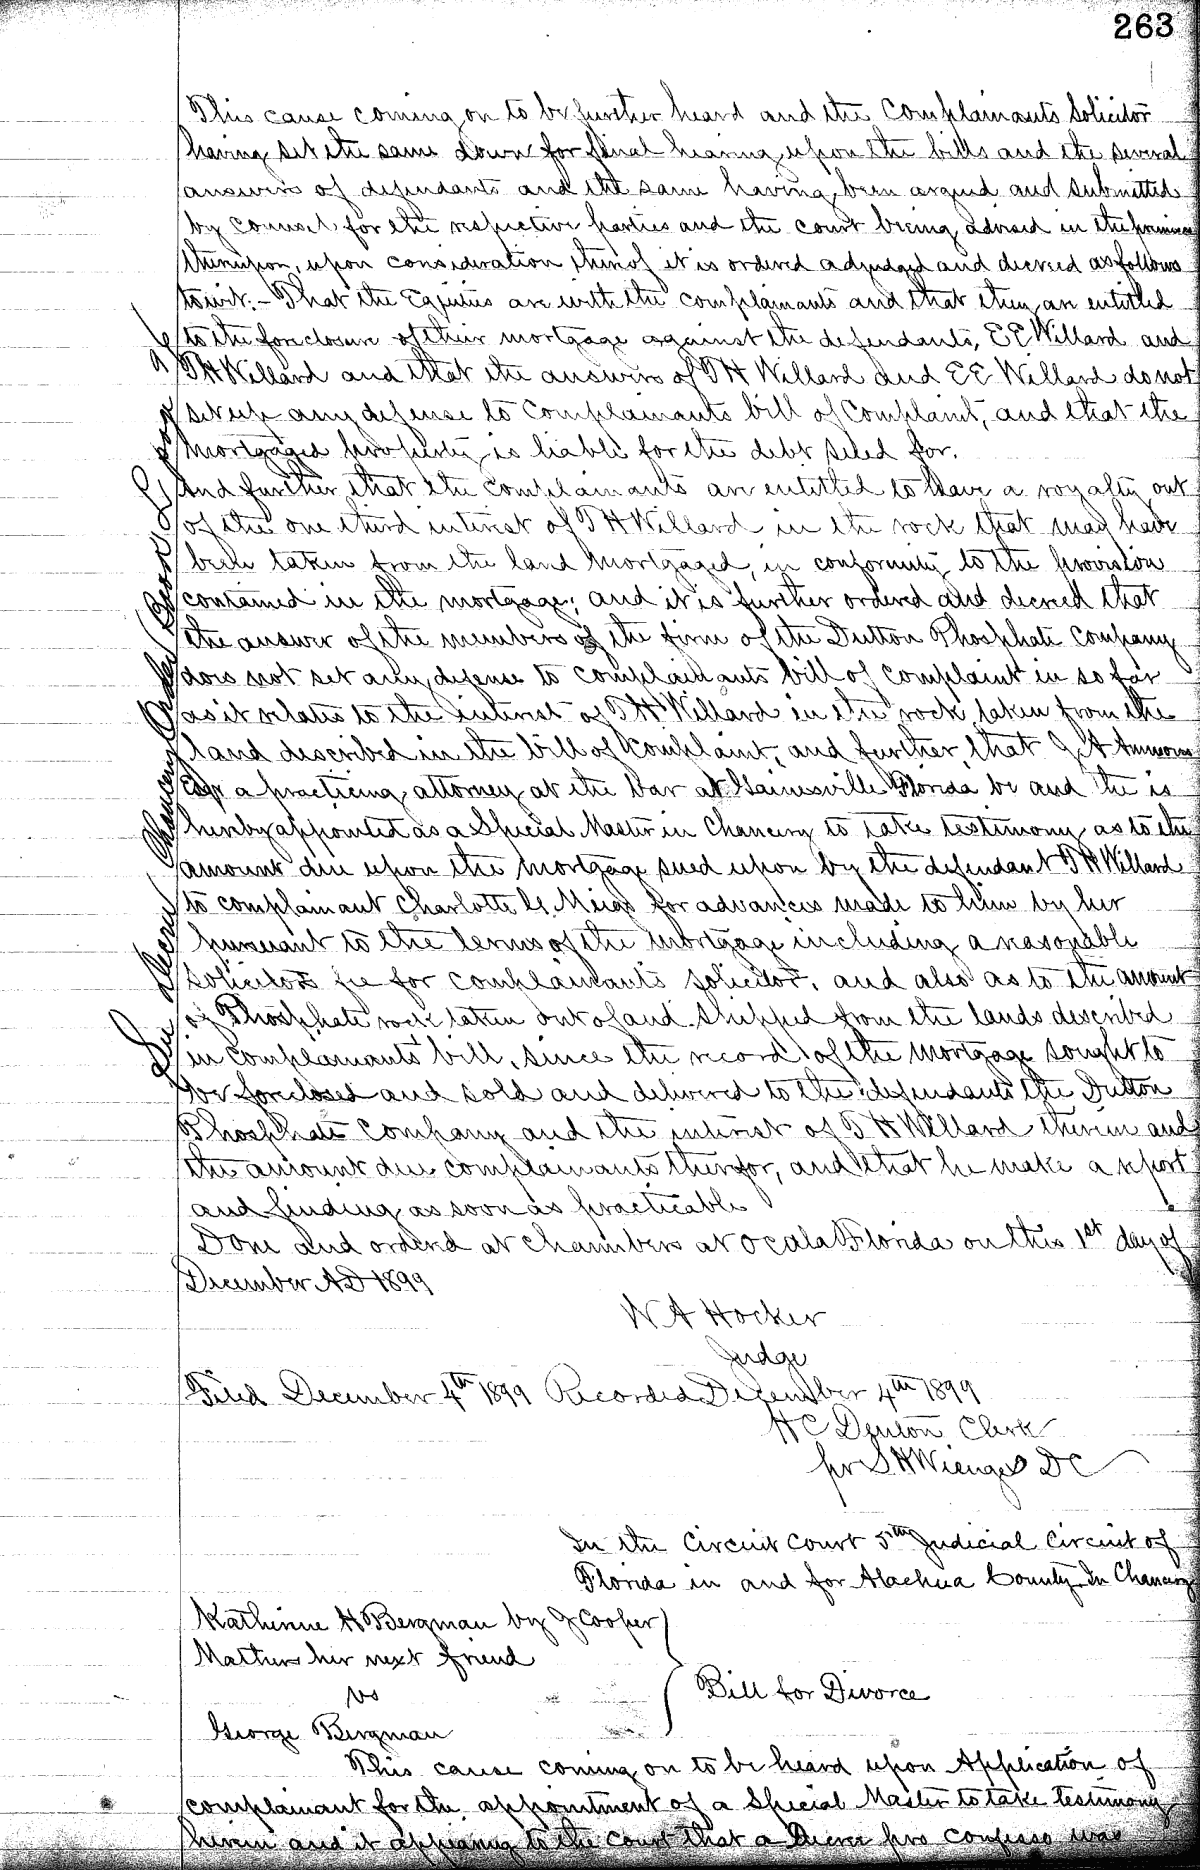 263
This cause coming on to be further heard and the Complainants Solicitor
having set the same down for final hearing upon the bills and the several
answers of defendants and the same having been argued and submitted
by counsel for the respective parties and the court being advised in the premises
thereupon, upon consideration thereof it is ordered adjudged and decreed as follows
towit:- That the Equities are with the complainants and that they are entitled
to the foreclosure of their mortgage against the defendants, E E Willard and
T H Willard and that the answers of T H Willard and E E Willard do not
set up any defense to Complainants bill of Complaint, and that the
mortgaged property is liable for the debt sued for.
And further that the complainants are entitled to have a royalty out
of the one third interest of T H Willard in the rock that may have
been taken from the land mortgaged, in conformity to the provision
contained in the mortgage; and it is further ordered and decreed that
the answer of the members of the firm of the Dutton Phosphate Company
does not set any defense to complainants bill of complaint in so far
as it relates to the interest of T H Willard in the rock taken from the
land described in the bill of Complaint, and further, that G A Ammons
Esqr a practicing attorney at the bar at Gainesville Florida be and the is
hereby appointed as a Special Master in Chancery to take testimony as to the
amount due upon the mortgage sued upon by the defendant T H Willard
to complainant Charlotte G. Meigs for advances made to him by her
pursuant to the terms of the mortgage including a reasonable
solicitors fee for complainants solicitor, and also as to the amount
of Phosphate rock taken out of and shipped from the lands described
in complainants bill, since the record of the mortgage sought to
be foreclosed and sold and delivered to the defendants the Dutton
Phosphate Company and the interest of T H Willard therein and
the amount due complainants therefor, and that he make a report
and finding as soon as practicable
Done and ordered at Chambers at Ocala Florida on this 1st day of
December AD 1899
W A Hocker
Judge
Filed December 4th 1899 Recorded December 4th 1899
H C Denton Clerk
pr S H Wienges DC
See Decree Chancery Order Book
In the Circuit Court 5th Judicial Circuit of
Florida in and for Alachua County In Chancery
Katherine H Bergman by J Cooper
Mathews her next friend
vs
Bill for Divorce
George Bergman
This cause coming on to be heard upon Application of
complainant for the appointment of a Special Master to take testimony
herein and it appearing to the Court that a Decree pro confesso was